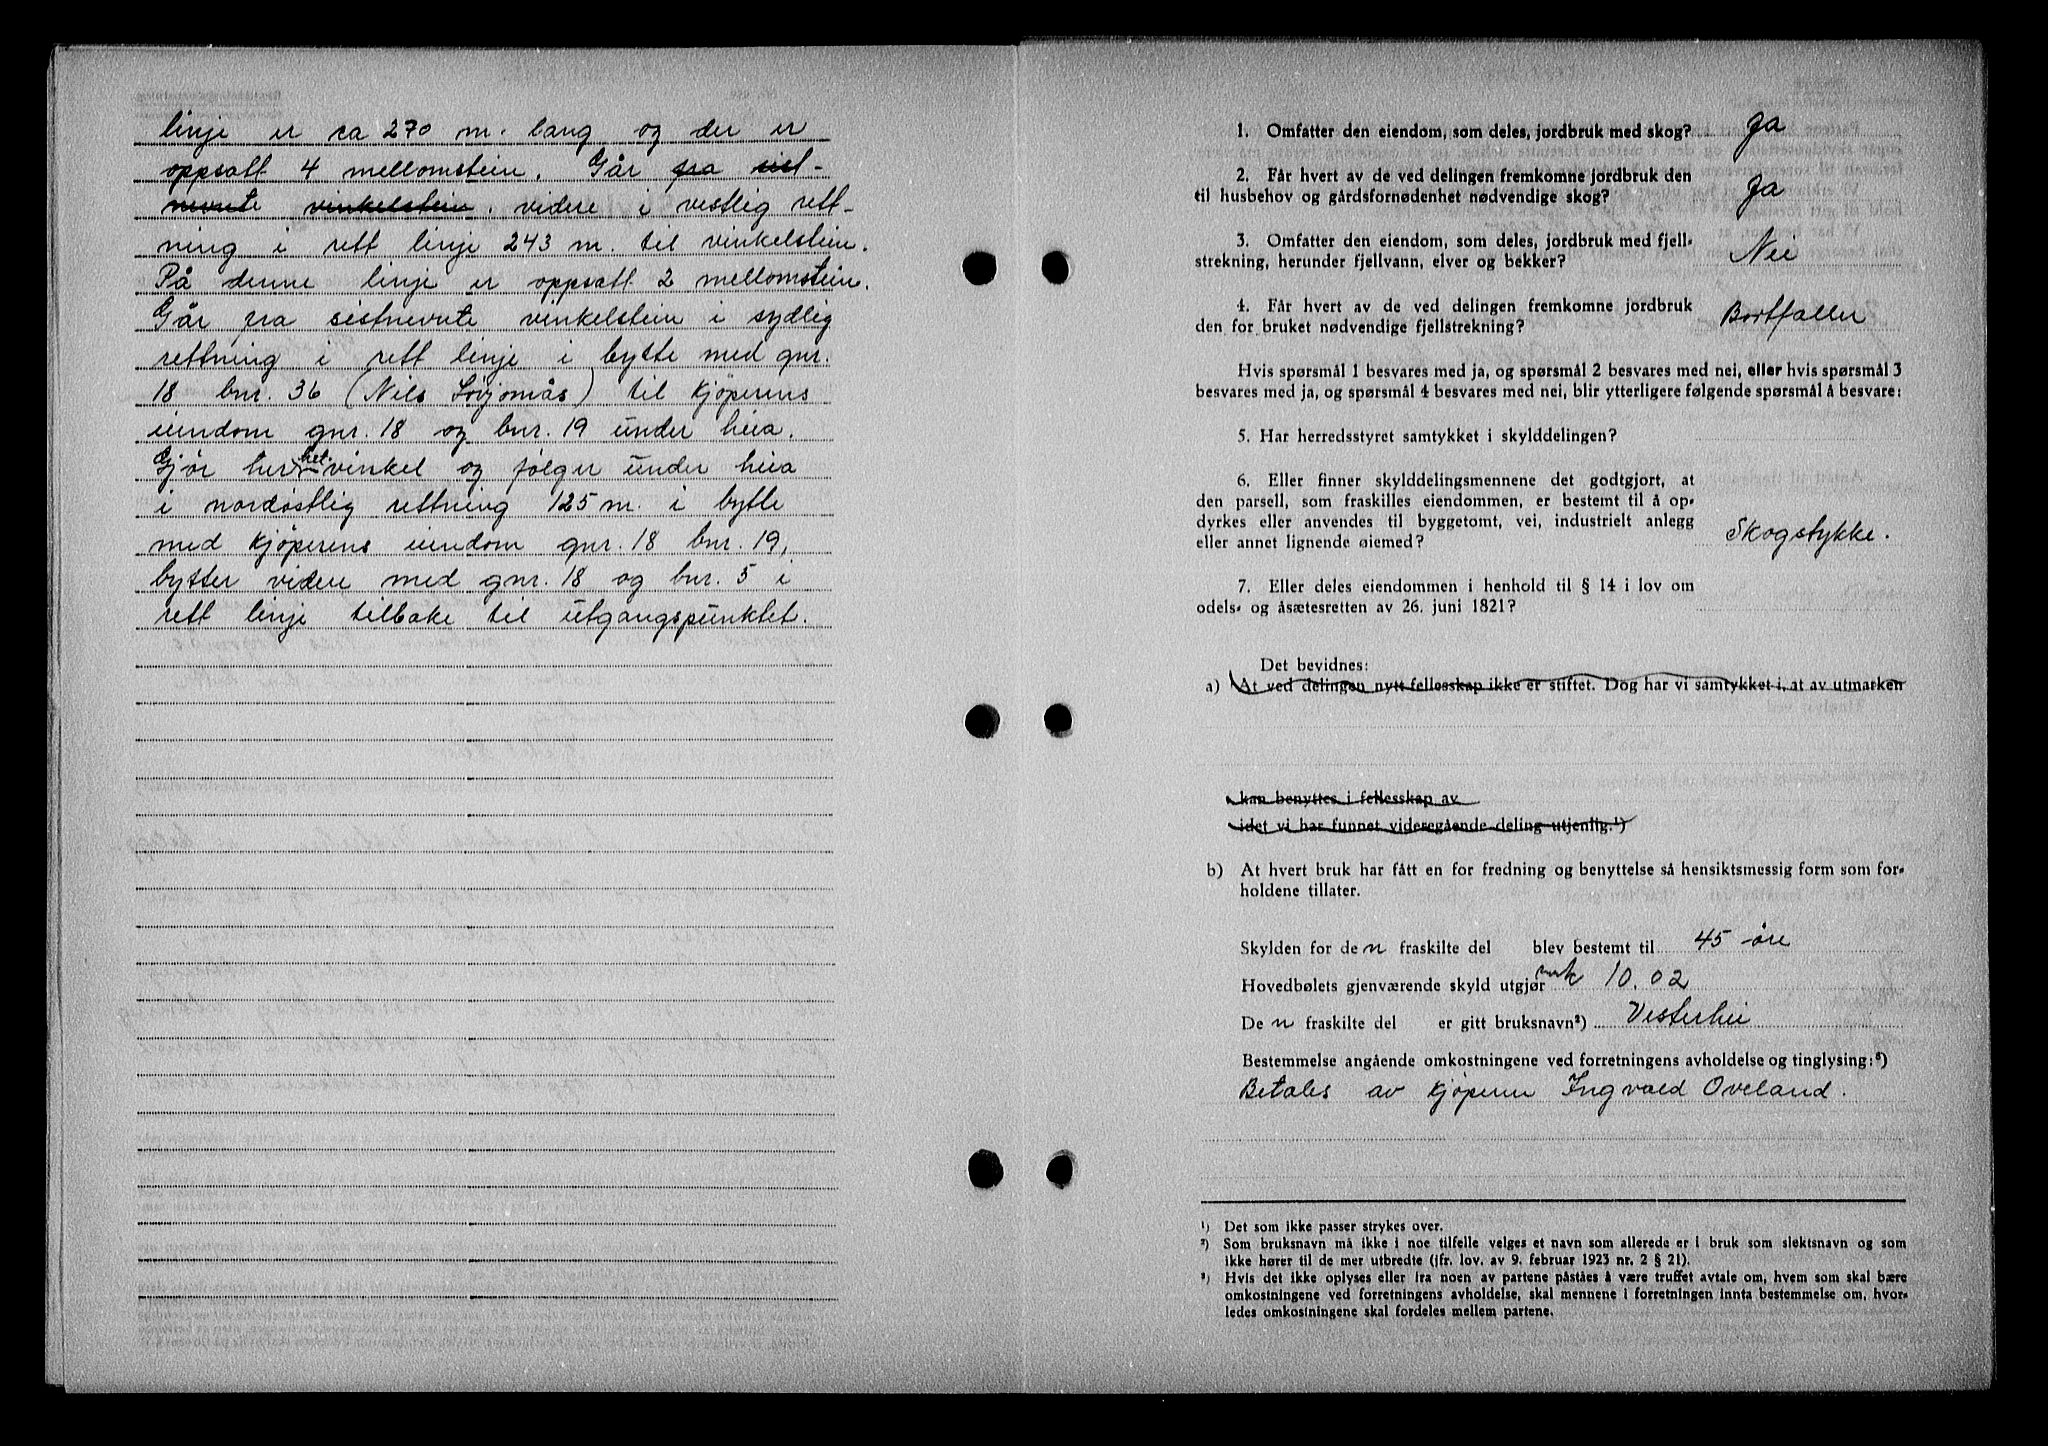 linje er ca 270 m. lang og der er
oppsatt 4 mellomstein. Går fra sist-
nevnte vinkelstein. videre i vestlig rett-
ning i rett linje 243 m. til vinkelstein.
På denne linje er oppsatt 2 mellomstein.
Går fra sistnevnte vinkelstein i sydlig
rettning i rett linje i bytte med gnr.
18 bnr. 36 (Nils Sørjomås) til kjöperens
eiendom gnr. 18 og bnr. 19 under heia.
Gjör her ret vinkel og følger under heia
i nordöstlig rettning 125 m. i bytte
med kjöperens eiendom gnr. 18 bnr. 19,
bytter videre med gnr. 18 og bnr. 5 i
rett linje tilbake til utgangspunktet.
1. Omfatter den eiendom, som deles, jordbruk med skog? Ja
2. Får hvert av de ved delingen fremkomne jordbruk den
til husbehov og gårdsfornødenhet nødvendige skog? Ja
3. Omfatter den eiendom, som deles, jordbruk med fjell-
strekning, herunder fjellvann, elver og bekker? Nei
4. Får hvert av de ved delingen fremkomne jordbruk
den for bruket nødvendige fjellstrekning? Bortfaller
Hvis spørsmål 1 besvares med ja, og spørsmål 2 besvares med nei, eller hvis spørsmål 3
besvares med ja, og spørsmål 4 besvares med nei, blir ytterligere følgende spørsmål å besvare:
5. Har herredsstyret samtykket i skylddelingen?
6. Eller finner skylddelingsmennene det godtgjort, at
den parsell, som fraskilles eiendommen, er bestemt til å op-
dyrkes eller anvendes til byggetomt, vei, industrielt anlegg
eller annet lignende øiemed? Skogstykke.
7. Eller deles eiendommen i henhold til § 14 i lov om
odels- og åsætesretten av 26. juni 1821?
Det bevidnes:
a) At ved delingen nytt fellesskap ikke er stiftet. Dog har vi samtykket i, at av utmarken
kan benyttes i fellesskap av
idet vi har funnet videregående deling utjenlig.¹)
b) At hvert bruk har fått en for fredning og benyttelse så hensiktsmessig form som for-
holdene tillater.
Skylden for den fraskilte del blev bestemt til 45 øre
Hovedbølets gjenværende skyld utgjør mrk 10.02
Den fraskilte del er gitt bruksnavn²) Vesterhei
Bestemmelse angående omkostningene ved forretningens avholdelse og tinglysing:³)
Betales av kjöperen Ingvald Oveland.
¹) Det som ikke passer strykes over.
²) Som bruksnavn må ikke i noe tilfelle velges et navn som allerede er i bruk som slektsnavn og som
ikke hører til de mer utbredte (jfr. lov. av 9. februar 1923 nr. 2 § 21).
³) Hvis det ikke oplyses eller fra noen av partene påståes å være truffet avtale om, hvem som skal bære
omkostningene ved forretningens avholdelse, skal mennene i forretningen innta bestemmelse om, hvor-
ledes omkostningene skal fordeles mellem partene.